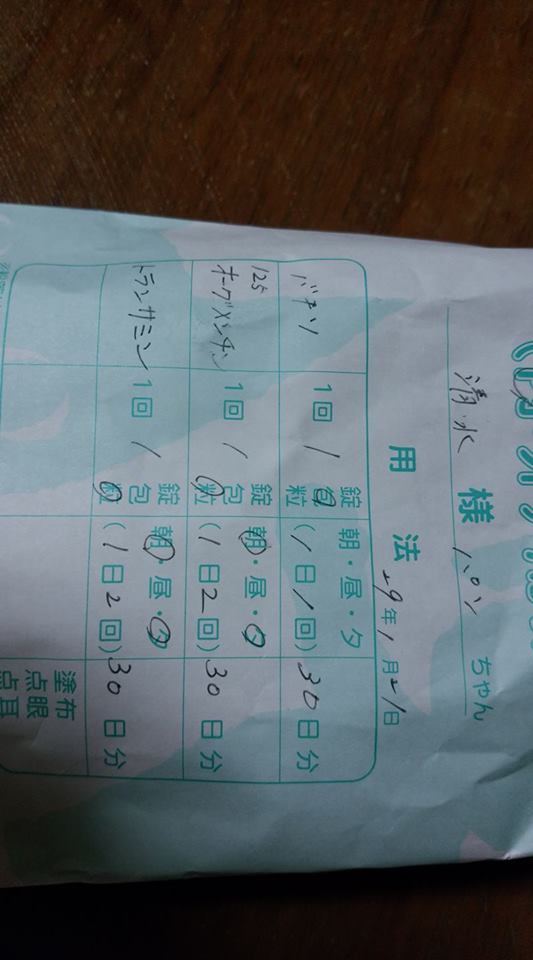 清水 様 パンツ ちゃん
用法 29年1月21日
バキソ 1回 1 錠・包・粒 朝・昼・夕 (1日1回) 30日分
125 オーグメンチン 1回 1 錠・包・粒 朝・昼・夕 (1日2回) 30日分
トランサミン 1回 1 錠・包・粒 朝・昼・夕 (1日2回) 30日分
塗布
点眼
点耳